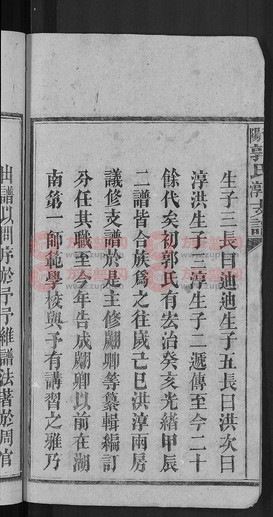 陽郭氏淳支譜
生子三長曰迪迪生子五長曰洪次曰
淳洪生子三淳生子二遞傳至今二十
餘代矣初郭氏有宏治癸亥光緒甲辰
二譜皆合族爲之往歲己巳洪淳兩房
議修支譜於是主修翽卿等纂輯編訂
分任其職至今年告成翽卿以前在湖
南第一師範學校與予有講習之雅乃
由譜以問序於予予維譜法著於周官